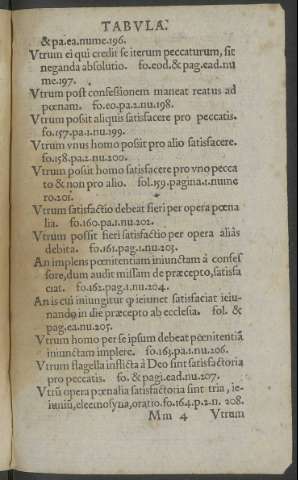 TABVLÆ.
& pa.ea.nume.196.
Vtrum ei qui credit se iterum peccaturum, sit
neganda absolutio. fo.eod.& pag.ead.nu
me.197.
Vtrum post confessionem maneat reatus ad
pœnam. fo.eo.pa.2.nu.198.
Vtrum possit aliquis satisfacere pro peccatis.
fo.157.pa.1.nu.199.
Vtrum vnus homo possit pro alio satisfacere.
fo.158.pa.2.nu.200.
Vtrum possit homo satisfacere pro vno pecca
to & non pro alio. fol.159.pagina.1.nume
ro.201.
Vtrum satisfactio debeat fieri per opera pœna
lia. fo.160.pa.1.nu.202.
Vtrum possit fieri satisfactio per opera aliàs
debita. fo.161.pag.1.nu.203.
An implens pœnitentiam iniunctam à confes
sore, dum audit missam de præcepto, satisfa
ciat. fo.162.pag.1.nu.204.
An is cui iniungitur ꝙ ieiunet satisfaciat ieiu-
nando in die præcepto ab ecclesia. fol. &
pag.ea.nu.205.
Vtrum homo per se ipsum debeat pœnitentiā
iniunctam implere. fo.163.pa.1.nu.206.
Vtrum flagella inflicta à Deo sint satisfactoria
pro peccatis. fo. & pagi.ead.nu.207.
Vtrū opera pœnalia satisfactoria sint tria, ie-
iuniū, eleemosyna, oratio. fo.164.p.2.n. 208.
Mm 4 Vtrum